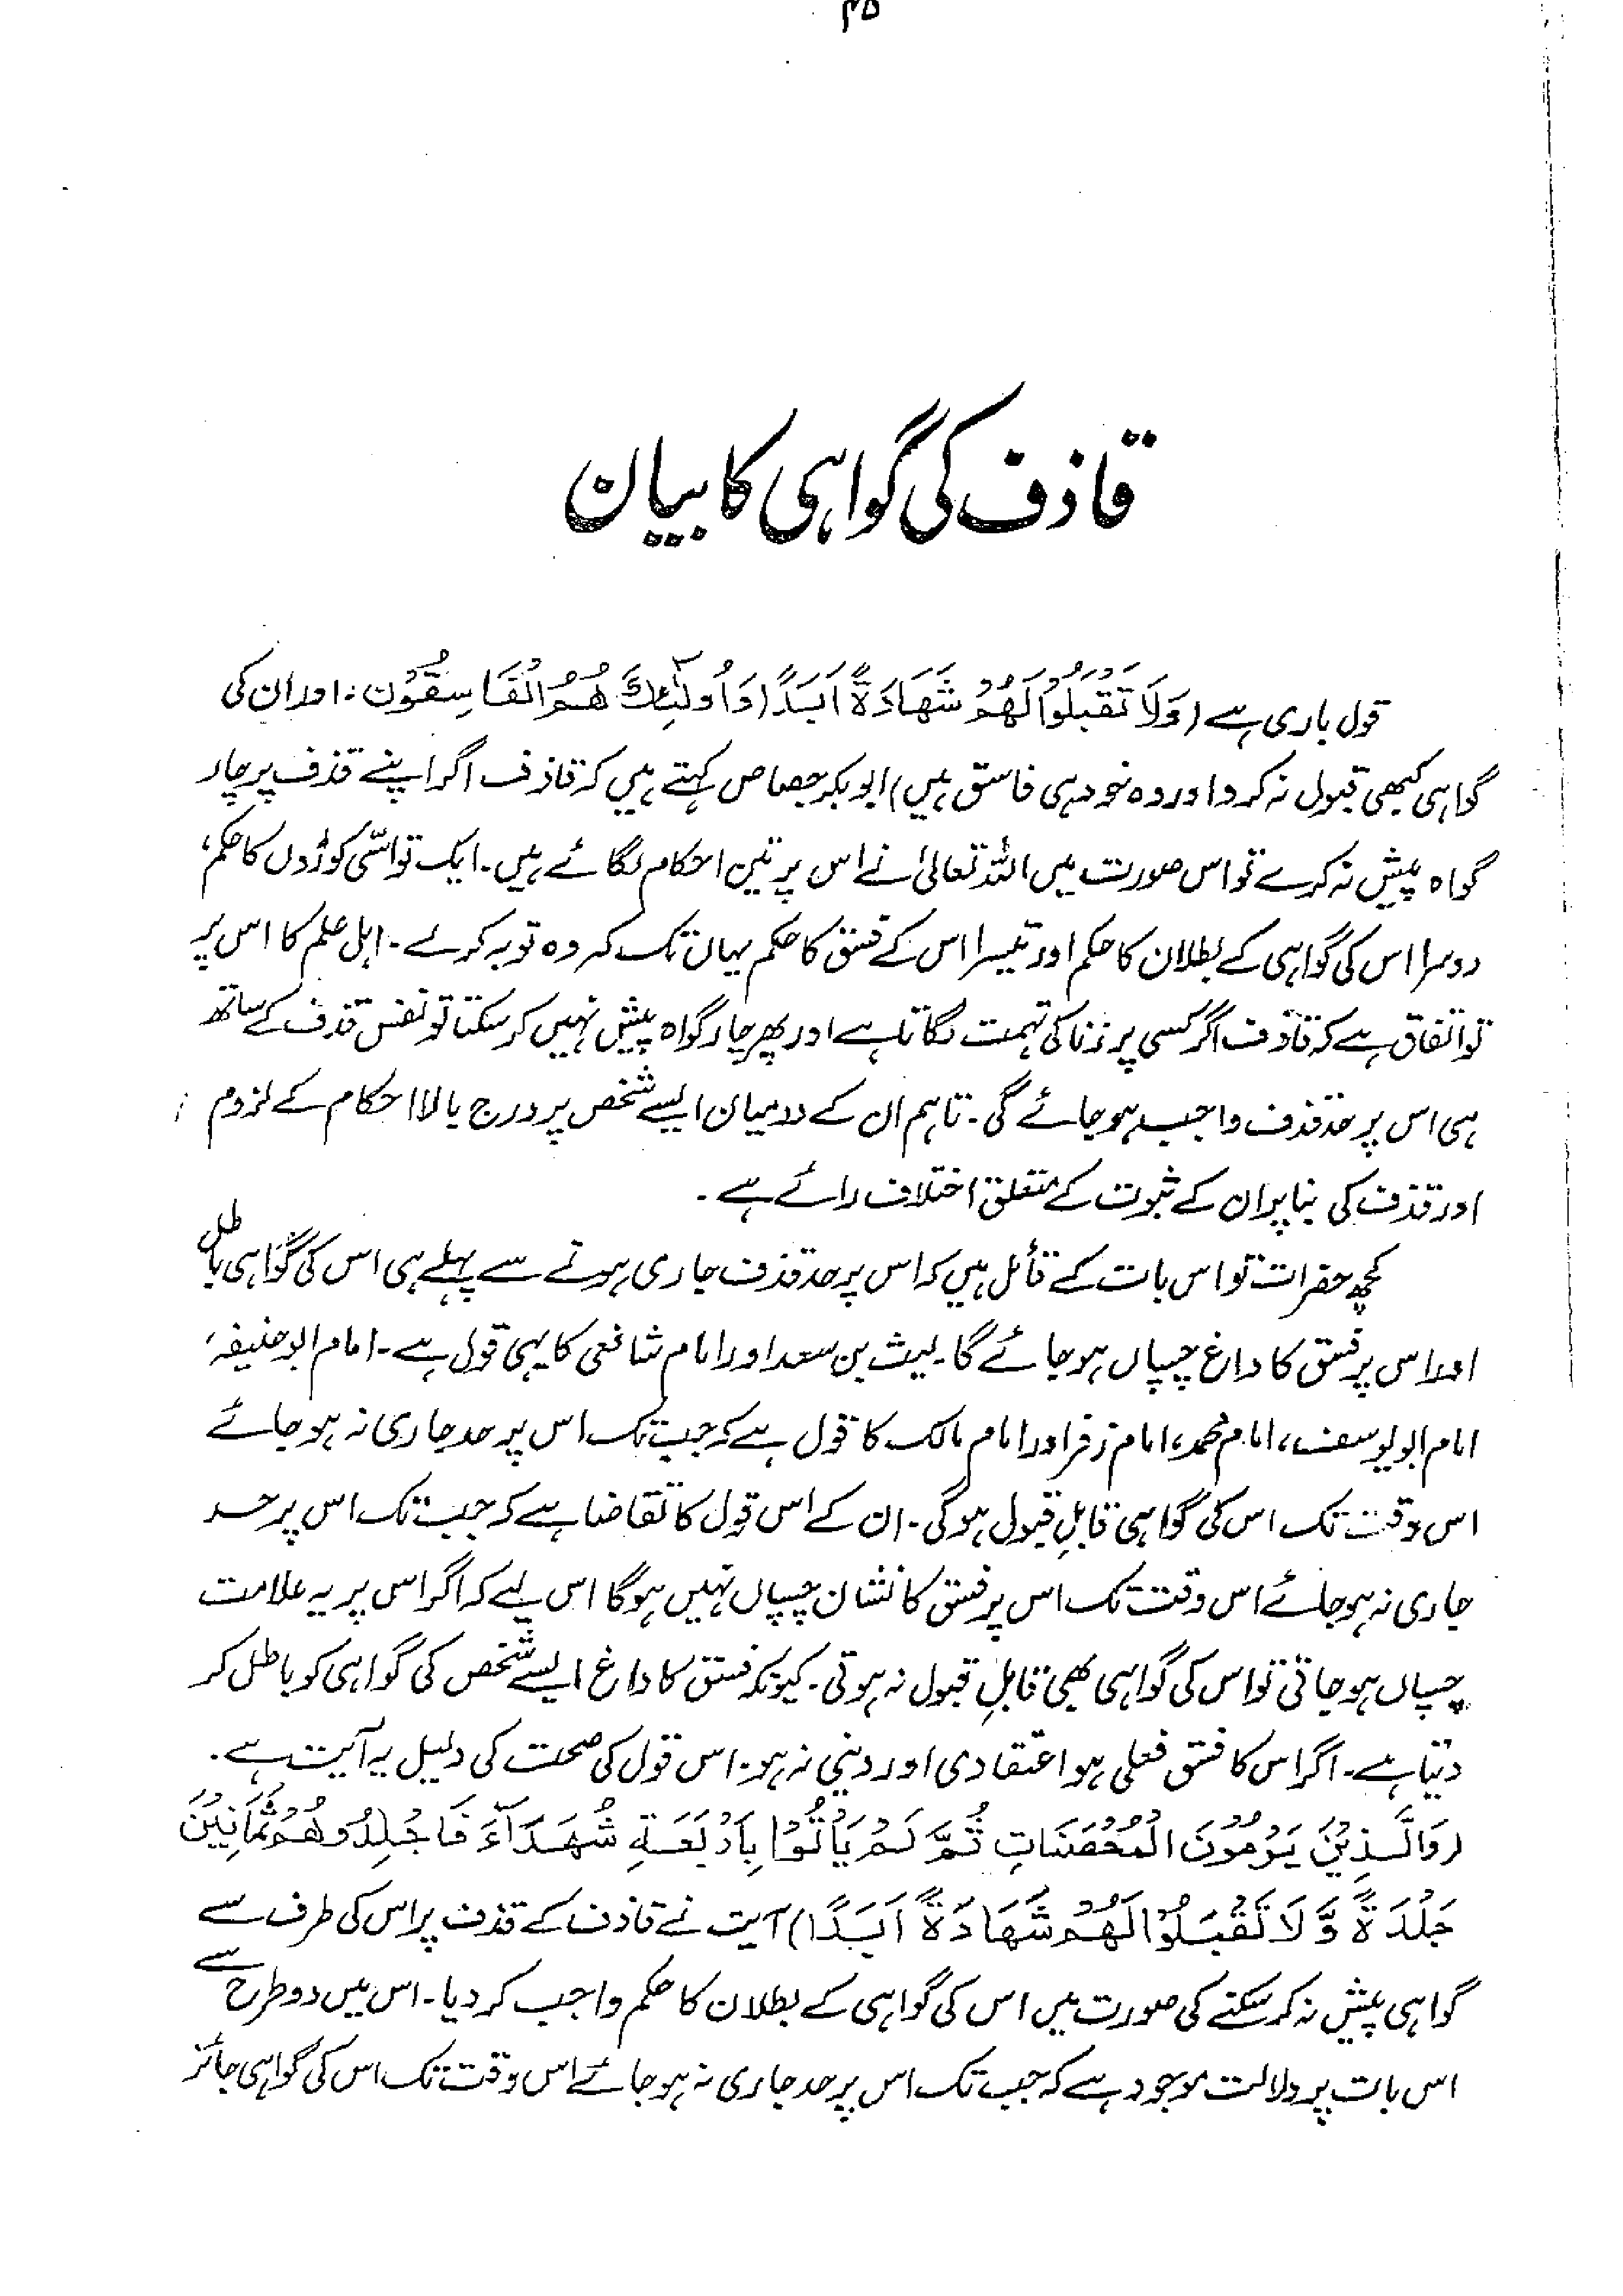 ۴۵
قاذف کی گواہی کا بیان
قول باری ہے (وَلَا تَقْبَلُوْا لَهُمْ شَهَادَةً اَبَدًا (وَاُولٰٓئِكَ هُمُ الْفَاسِقُوْن: اور ان کی
گواہی کبھی قبول نہ کرو اور وہ خود ہی فاسق ہیں) ابوبکر جصاص کہتے ہیں کہ قاذف اگر اپنے قذف پر چار
گواہ پیش نہ کرے تو اس صورت میں اللہ تعالیٰ نے اس پر تین احکام لگائے ہیں۔ ایک تو اسّی کوڑوں کا حکم،
دوسرا اس کی گواہی کے بطلان کا حکم اور تیسرا اس کے فسق کا حکم یہاں تک کہ وہ توبہ کرلے۔ اہل علم کا اس پر
تو اتفاق ہے کہ قاذف اگر کسی پر زنا کی تہمت لگاتا ہے اور پھر چار گواہ پیش نہیں کرسکتا تو نفس قذف کے ساتھ
ہی اس پر حد قذف واجب ہو جائے گی۔ تاہم ان کے درمیان ایسے شخص پر درج بالا احکام کے لزوم
اور قذف کی بنا پر ان کے ثبوت کے متعلق اختلاف رائے ہے۔
کچھ حضرات تو اس بات کے قائل ہیں کہ اس پر حد قذف جاری ہونے سے پہلے ہی اس کی گواہی باطل
اور اس پر فسق کا داغ چسپاں ہو جائے گا۔ لیث بن سعد اور امام شافعی کا یہی قول ہے۔ امام ابوحنیفہ،
امام ابویوسف، امام محمد، امام زفر اور امام مالک کا قول ہے کہ جب تک اس پر حد جاری نہ ہو جائے
اس وقت تک اس کی گواہی قابلِ قبول ہوگی۔ ان کے اس قول کا تقاضا ہے کہ جب تک اس پر حد
جاری نہ ہو جائے اس وقت تک اس پر فسق کا نشان چسپاں نہیں ہوگا اس لیے کہ اگر اس پر یہ علامت
چسپاں ہو جاتی تو اس کی گواہی بھی قابلِ قبول نہ ہوتی۔ کیونکہ فسق کا داغ ایسے شخص کی گواہی کو باطل کر
دیتا ہے۔ اگر اس کا فسق فعلی ہو اعتقادی اور دینی نہ ہو۔ اس قول کی صحت کی دلیل یہ آیت ہے۔
(وَالَّذِيْنَ يَرْمُوْنَ الْمُحْصَنَاتِ ثُمَّ لَمْ يَاْتُوْا بِاَرْبَعَةِ شُهَدَآءَ فَاجْلِدُوْهُمْ ثَمَانِيْنَ
جَلْدَةً وَّلَا تَقْبَلُوْا لَهُمْ شَهَادَةً اَبَدًا) آیت نے قاذف کے قذف پر اس کی طرف سے
گواہی پیش نہ کرسکنے کی صورت میں اس کی گواہی کے بطلان کا حکم واجب کر دیا۔ اس میں دو طرح سے
اس بات پر دلالت موجود ہے کہ جب تک اس پر حد جاری نہ ہو جائے اس وقت تک اس کی گواہی جائز